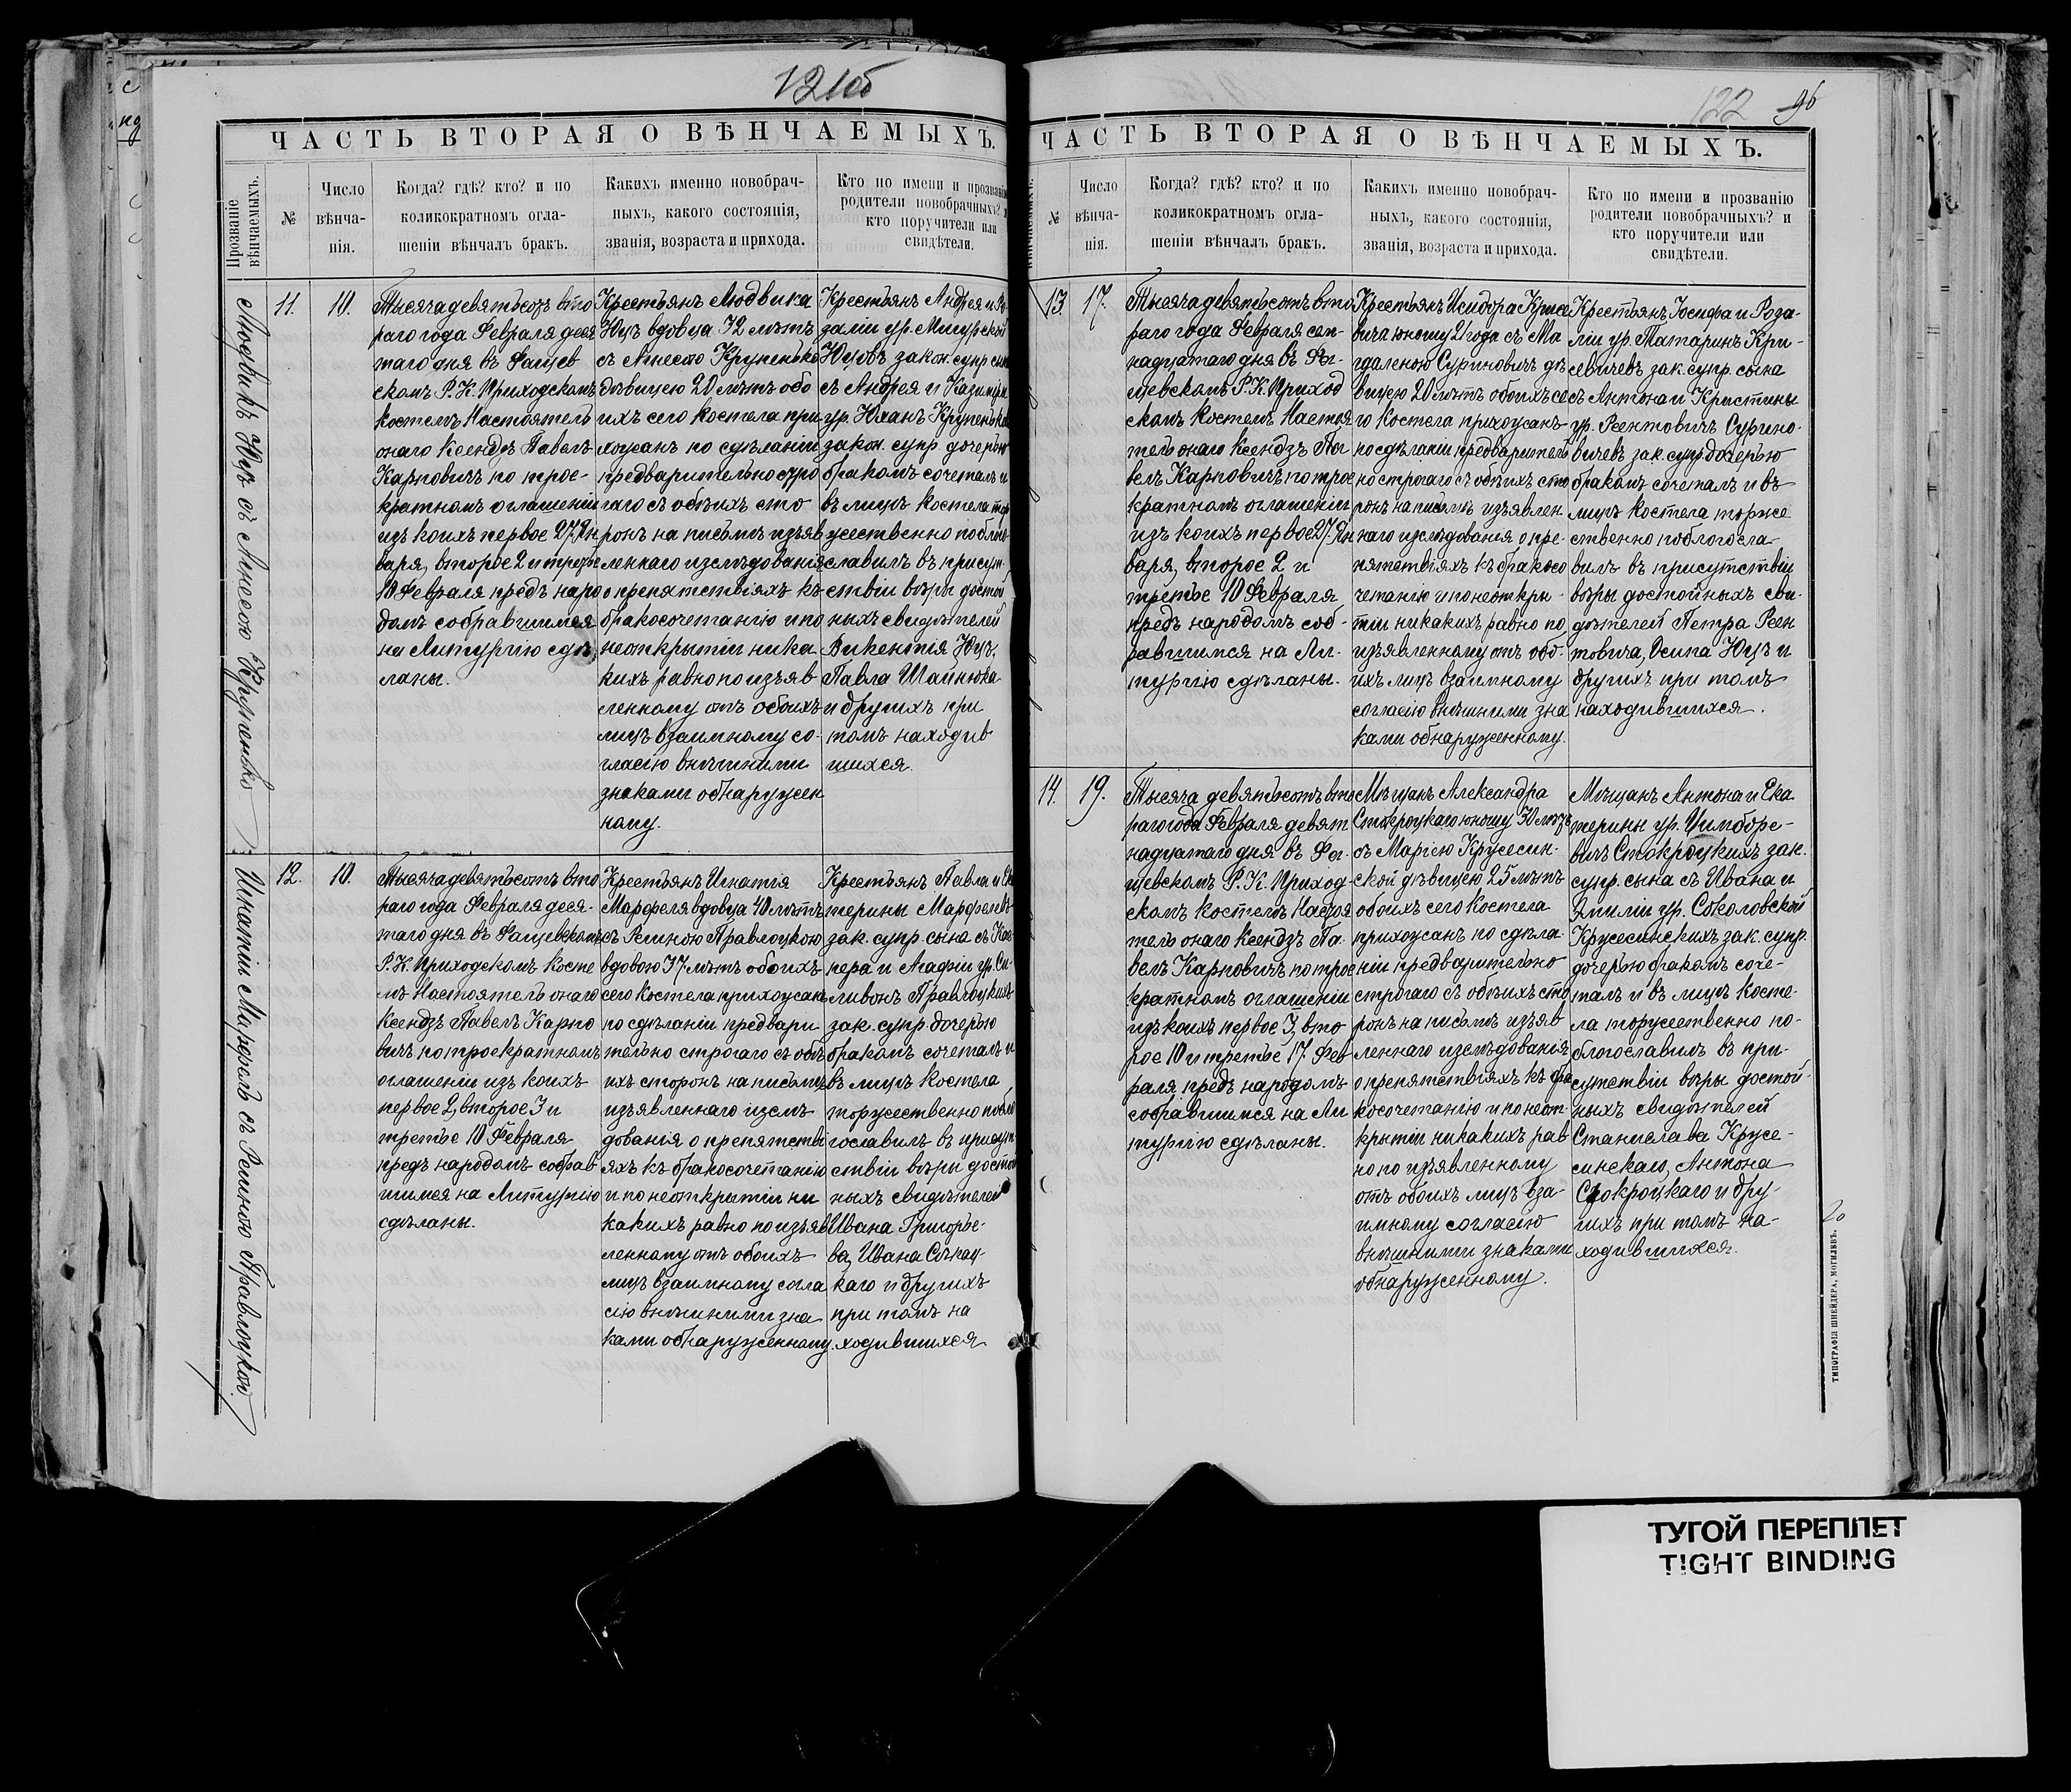 121об
ЧАСТЬ ВТОРАЯ О ВѢНЧАЕМЫХЪ.
Прозваніе вѣнчаемыхъ.
№
Число
вѣнча-
нія.
Когда? гдѣ? кто? и по
коликократномъ огла-
шеніи вѣнчалъ бракъ.
Какихъ именно новобрач-
ныхъ, какого состоянія,
званія, возраста и прихода.
Кто по имени и прозванію
родители новобрачныхъ? и
кто поручители или
свидѣтели.
Людвикъ Юцъ съ Агнесою Крупенько
11.
10.
Тысяча девятьсотъ вто
раго года Февраля деся
таго дня въ Фащев
скомъ Р. К. Приходскомъ
костелѣ Настоятель
онаго Ксендзъ Павелъ
Карповичъ по трое-
кратномъ оглашеніи
изъ коихъ первое 27 Ян
варя, второе 2 и третье
10 Февраля предъ наро
домъ собравшимся
на Литургію сдѣ
ланы.
Крестьянъ Людвика
Юцъ вдовца 32 лѣтъ
съ Агнесою Крупенько
дѣвицею 20 лѣтъ обо
ихъ сего костела при
хожанъ по сдѣланіи
предварительно стро
гаго съ обѣихъ сто
ронъ на письмѣ изъяв
леннаго изслѣдованія
о препятствіяхъ къ
бракосочетанію и по
неоткрытіи ника
кихъ равно по изъяв
ленному отъ обоихъ
лицъ взаимному со-
гласію внѣшними
знаками обнаружен
ному.
Крестьянъ Андрея и Ро
заліи ур. Мигурской
Юцовъ закон. супр сына
съ Андрея и Казимиры
ур. Юханъ Крупенько
закон. супр дочерью
бракомъ сочеталъ и
въ лицѣ костела тор
жественно поблаго
славилъ въ присут
ствіи вѣры достой
ныхъ свидѣтелей
Викентія Юцъ,
Павла Шайнюка
и другихъ при
томъ находив
шихся.
Игнатій Марфель съ Региною Правлоцкой
12.
10.
Тысяча девятьсотъ вто
раго года Февраля деся-
таго дня въ Фащевскомъ
Р. К. Приходскомъ косте
лѣ Настоятель онаго
Ксендзъ Павелъ Карпо
вичъ по троекратномъ
оглашеніи изъ коихъ
первое 2, второе 3 и
третье 10 Февраля
предъ народомъ собрав
шимся на Литургію
сдѣланы.
Крестьянъ Игнатія
Марфеля вдовца 40 лѣтъ
съ Региною Правлоцкою
вдовою 37 лѣтъ обоихъ
сего костела прихожанъ
по сдѣланіи предвари
тельно строгаго съ обѣ
ихъ сторонъ на письмѣ
изъявленнаго изслѣ
дованія о препятстві
яхъ къ бракосочетанію
и по неоткрытіи ни
какихъ равно по изъяв
ленному отъ обоихъ
лицъ взаимному согла
сію внѣшними зна
ками обнаруженному.
Крестьянъ Павла и Ека
терины Марфелевъ
зак. супр. сына съ Кас
пера и Агафіи ур. Си-
ливонъ Правлоцкихъ
зак. супр. дочерью
бракомъ сочеталъ и
въ лицѣ костела
торжественно побла
гославилъ въ присут
ствіи вѣры достой
ныхъ свидѣтелей
Ивана Григорье-
ва, Ивана
каго и другихъ
при томъ на
ходившихся
122
96
ЧАСТЬ ВТОРАЯ О ВѢНЧАЕМЫХЪ.
вѣнчаемыхъ.
№
Число
вѣнча-
нія.
Когда? гдѣ? кто? и по
коликократномъ огла-
шеніи вѣнчалъ бракъ.
Какихъ именно новобрач-
ныхъ, какого состоянія,
званія, возраста и прихода.
Кто по имени и прозванію
родители новобрачныхъ? и
кто поручители или
свидѣтели.
13.
17.
Тысяча девятьсотъ вто
раго года Февраля сем-
надцатаго дня въ Фа-
щевскомъ Р. К. Приход
скомъ костелѣ Настоя
тель онаго Ксендзъ Па
велъ Карповичъ по трое
кратномъ оглашеніи
изъ коихъ первое 27 Ян
варя, второе 2 и
третье 10 Февраля
предъ народомъ соб-
равшимся на Ли-
тургію сдѣланы.
Крестьянъ Исидора Крисе
вича юношу 21 года съ Ма
гдаленою Суриновичъ дѣ
вицею 20 лѣтъ обоихъ се
го костела прихожанъ
по сдѣланіи предваритель
но строгаго съ обѣихъ сто
ронъ на письмѣ изъявлен
наго изслѣдованія о пре-
пятствіяхъ къ бракосо
четанію и по неоткры-
тіи никакихъ равно по
изъявленному отъ обо-
ихъ лицъ взаимному
согласію внѣшними зна
ками обнаруженному.
Крестьянъ Іосифа и Роза-
ліи ур. Татаринъ Кри-
севичевъ зак. супр. сына
съ Антона и Кристины
ур. Рентовичъ Сурино-
вичевъ зак. супр дочерью
бракомъ сочеталъ и въ
лицѣ костела торже
ственно поблагосла-
вилъ въ присутствіи
вѣры достойныхъ сви-
дѣтелей Петра Рен
товича, Осипа Юцъ и
другихъ при томъ
находившихся.
14.
19.
Тысяча девятьсотъ вто
раго года Февраля девят
надцатаго дня въ Фа-
щевскомъ Р. К. Приход
скомъ костелѣ Настоя
тель онаго Ксендзъ Па-
велъ Карповичъ по трое
кратномъ оглашеніи
изъ коихъ первое 3, вто
рое 10 и третье 17 Фев
раля предъ народомъ
собравшимся на Ли
тургію сдѣланы.
Мѣщанъ Александра
Стокроцкаго юношу 30 лѣтъ
съ Маріею Крусесин-
ской дѣвицею 25 лѣтъ
обоихъ сего костела
прихожанъ по сдѣла-
ніи предварительно
строгаго съ обѣихъ сто
ронъ на письмѣ изъяв
леннаго изслѣдованія
о препятствіяхъ къ бра
косочетанію и по неот-
крытіи никакихъ рав
но по изъявленному
отъ обоихъ лицъ вза-
имному согласію
внѣшними знаками
обнаруженному.
Мѣщанъ Антона и Ека
терины ур. Цимборе-
вичъ Стокроцкихъ зак.
супр. сына съ Ивана и
Эмиліи ур. Соколовской
Крусесинскихъ зак. супр.
дочерью бракомъ соче-
талъ и въ лицѣ косте-
ла торжественно по-
благославилъ въ при-
сутствіи вѣры достой-
ныхъ свидѣтелей
Станислава Крусе-
синскаго, Антона
Стокроцкаго и дру-
гихъ при томъ на-
ходившихся.
20
ТИПОГРАФІЯ ШНЕЙДЕРА, МОГИЛЕВЪ.
ТУГОЙ ПЕРЕПЛЕТ
TIGHT BINDING